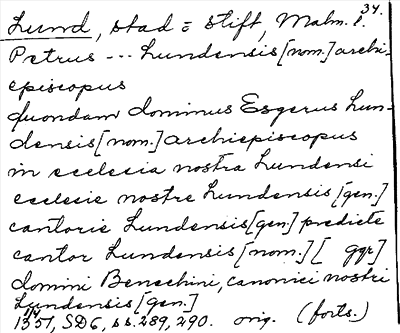 34.
Lund, stad o stift, Malm. l.
Petrus --- Lundensis [nom.] archi-
episcopus
quondam dominus Esgerus Lun-
densis [nom.] archiepiscopus
in ecclesia nostra Lundensi
ecclesie nostre Lundensis [gen.]
cantorie Lundensis [gen.] predicte
cantor Lundensis [nom.] [ ggr]
domini Benechini, canonici nostri
Lundensis [gen.]
1351, SD6, ss. 289, 290. orig. (forts.)